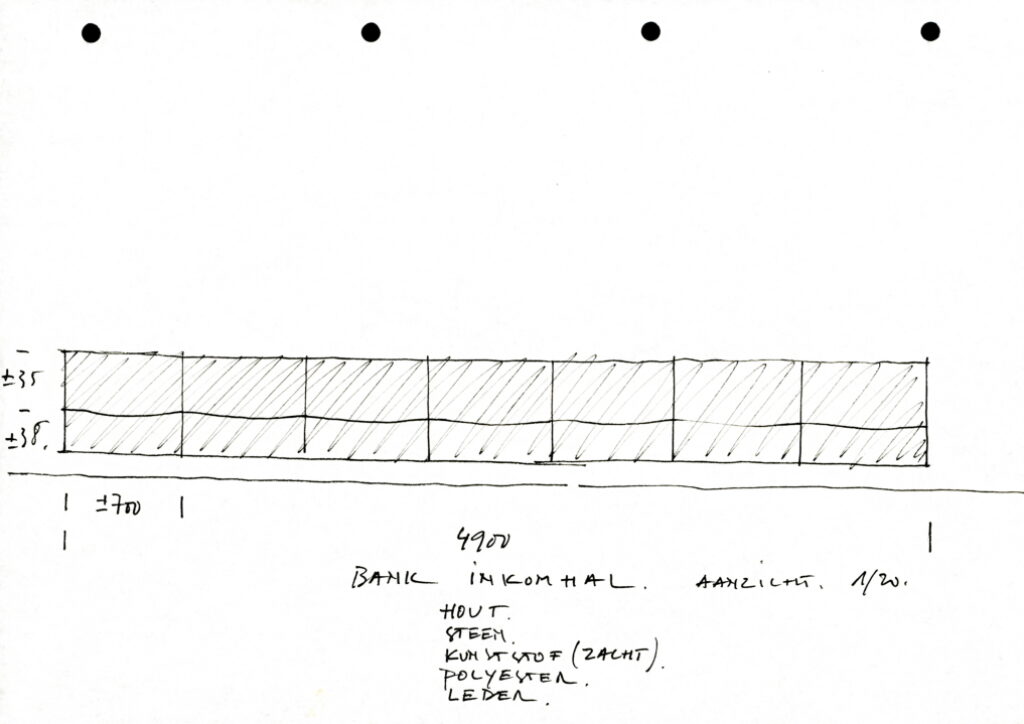 ±35
±38.
±700
4900
BANK INKOMHAL. AANZICHT. 1/20.
HOUT.
STEEN.
KUNSTSTOF (ZACHT).
POLYESTER.
LEDER.